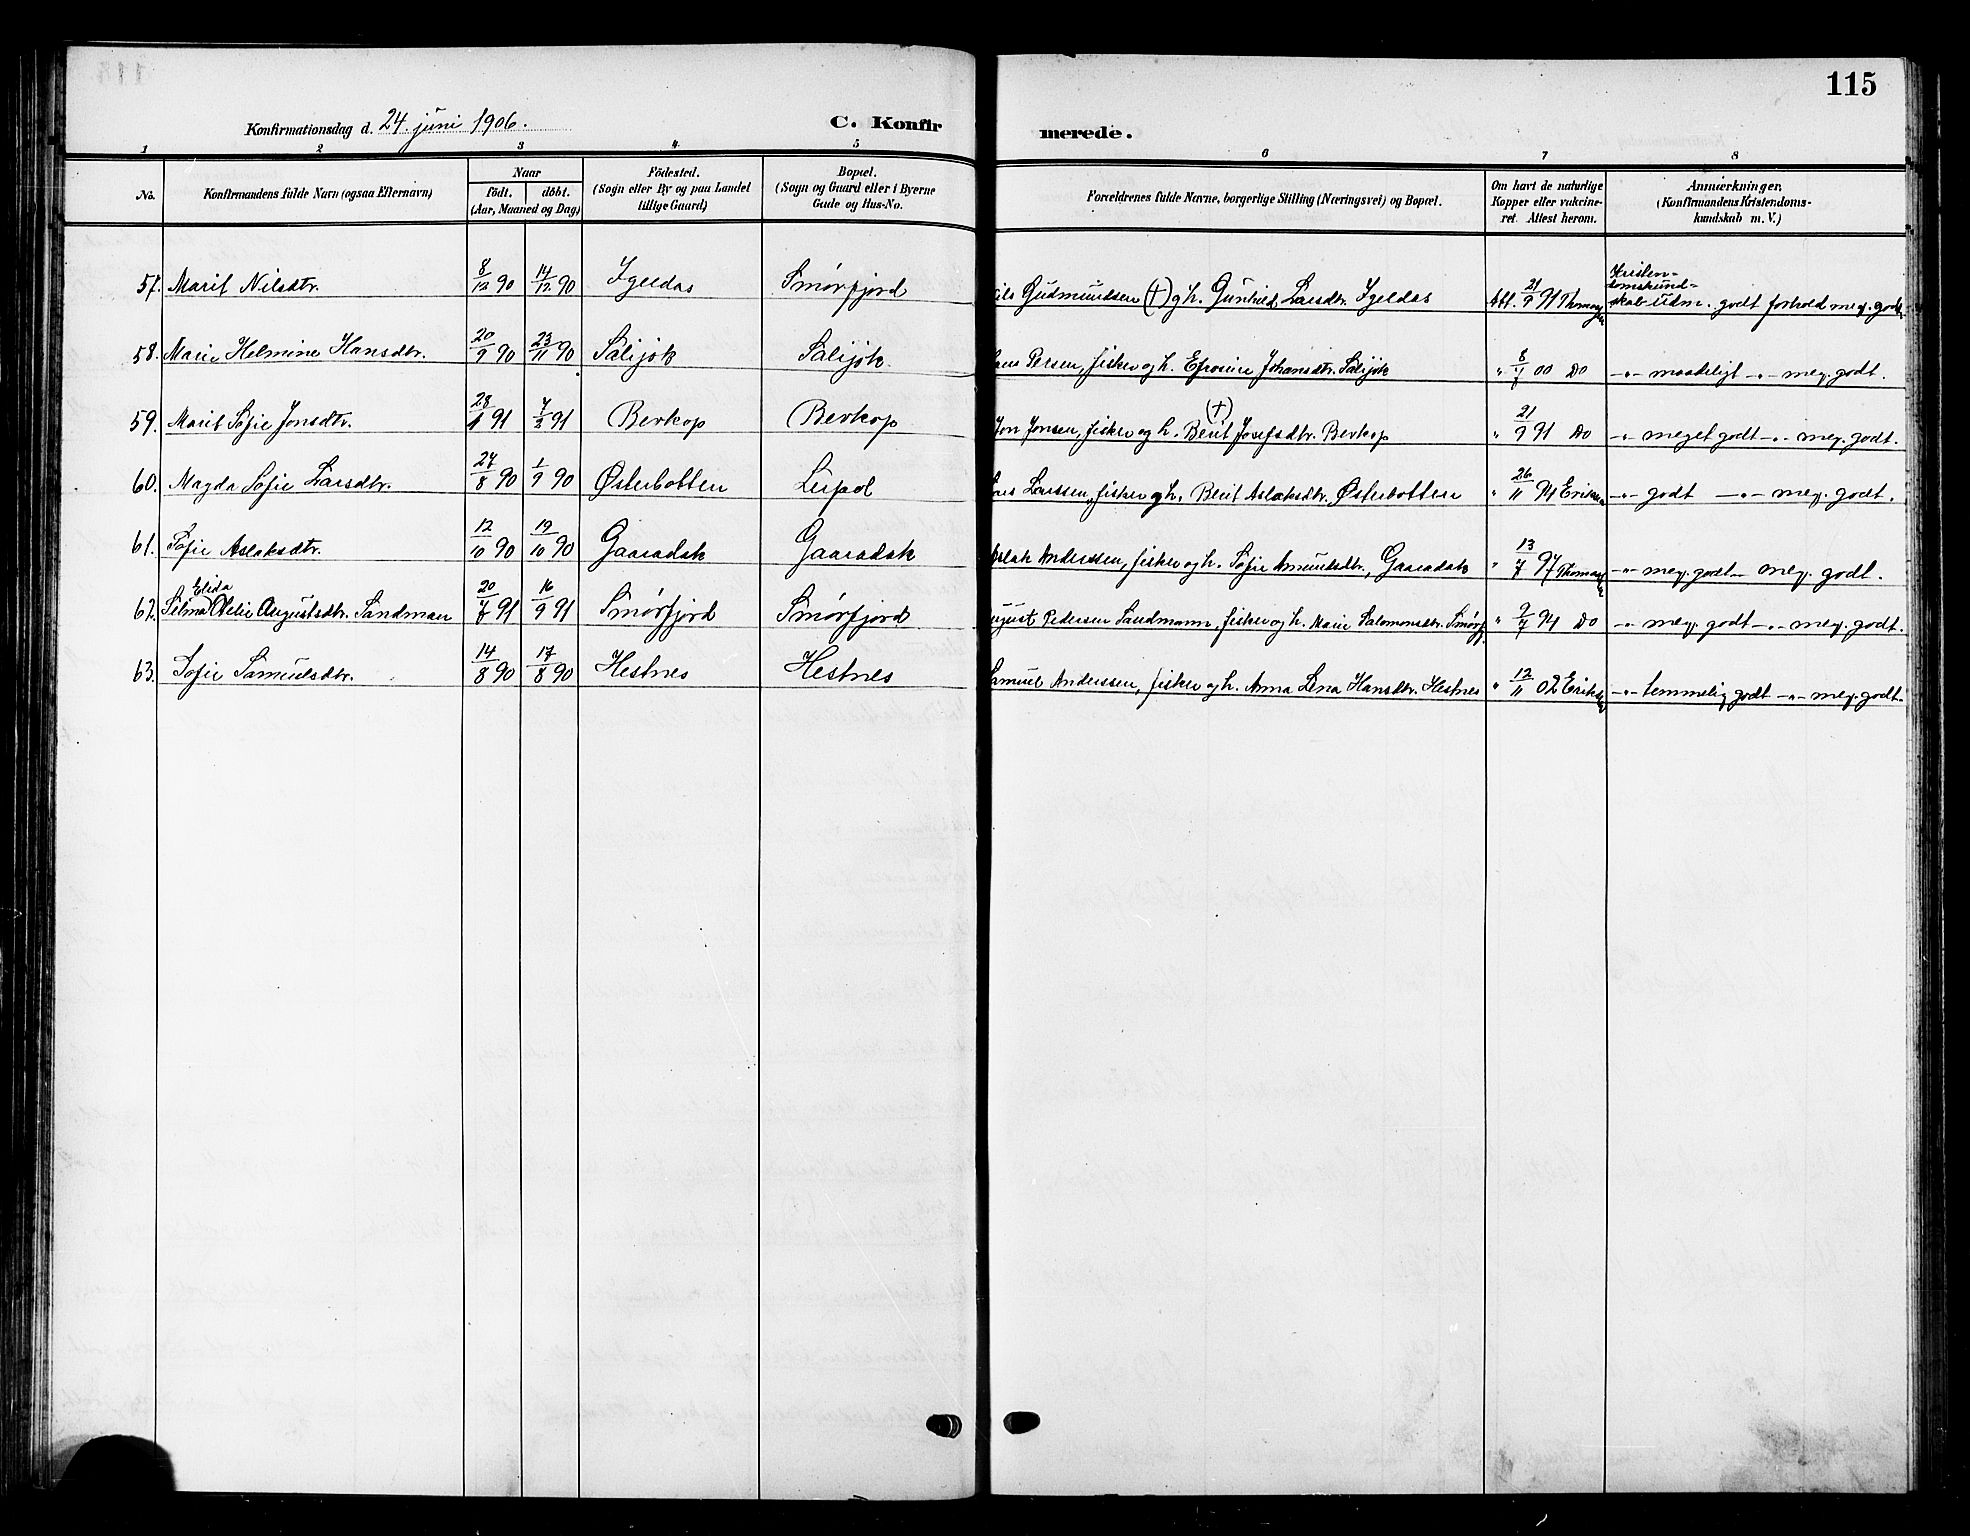 115
Konfirmationsdag d. 24. juni 1906.
C. Konfir
merede.
1 2 3 4 5 6 7 8
No.
Konfirmandens fulde Navn (ogsaa Efternavn)
Naar
födt. döbt.
(Aar, Maaned og Dag)
Födested.
(Sogn eller By og paa Landet
tillige Gaard)
Bopæl.
(Sogn og Gaard eller i Byerne
Gade og Hus-No.
Forældrenes fulde Navne, borgerlige Stilling (Næringsvei) og Bopæl.
Om havt de naturlige
Kopper eller vakcine-
ret. Attest herom.
Anmærkninger.
(Konfirmandens Kristendoms-
kundskab m. V.)
57. Marit Nilsdtr. 8/12 90 14/12 90 Igeldas Smørfjord ils Gudmundsen (+) og h. Gunhild Larsdtr. Igeldas Att. 21/9 91 Thomassen Kristen-
domskund-
skab udm. godt forhold meg. godt
58. Marie Helmine Hansdtr. 20/9 90 23/11 90 Salijok Salijok. ans Persen, fisker og h. Efrosine Johansdtr. Salijok " 8/7 00 Do -"- maadeligt -"- meg. godt.
59. Marit Sofie Jonsdtr. 28/1 91 7/2 91 Bevkop Bevkop Jon Jonsen, fisker og h. Berit (+) Josefsdtr. Bevkop " 21/9 91 Do -"- meget godt -"- meg. godt.
60. Magda Sofie Larsdtr. 27/8 90 1/9 90 Østerbotten Leipol ars Larssen, fisker og h. Berit Aslaksdtr. Østerbotten " 26/11 94 Eriksen -"- godt -"- meg. godt.
61. Sofie Aslaksdtr. 12/10 90 19/10 90 Gaaradak Gaaradak Aslak Anderssen, fisker og h. Sofie Amundsdtr., Gaaradak " 13/7 97 Thomassen -"- meg. godt -"- meg. godt.
62. Selma Elida Augustsdtr. Sandman 20/7 91 16/9 91 Smørfjord Smørfjord ugust Pedersen Sandmann, fisker og h. Marie Salomonsdtr. Smørf. " 9/7 94 Do -"- meg. godt -"- meg. godt.
63. Sofie Samuelsdtr. 14/8 90 17/8 90 Hestnes Hestnes Samuel Anderssen, fisker og h. Anna Lena Hansdtr. Hestnes " 12/11 02 Eriksen -"- temmelig godt -"- meg. godt.